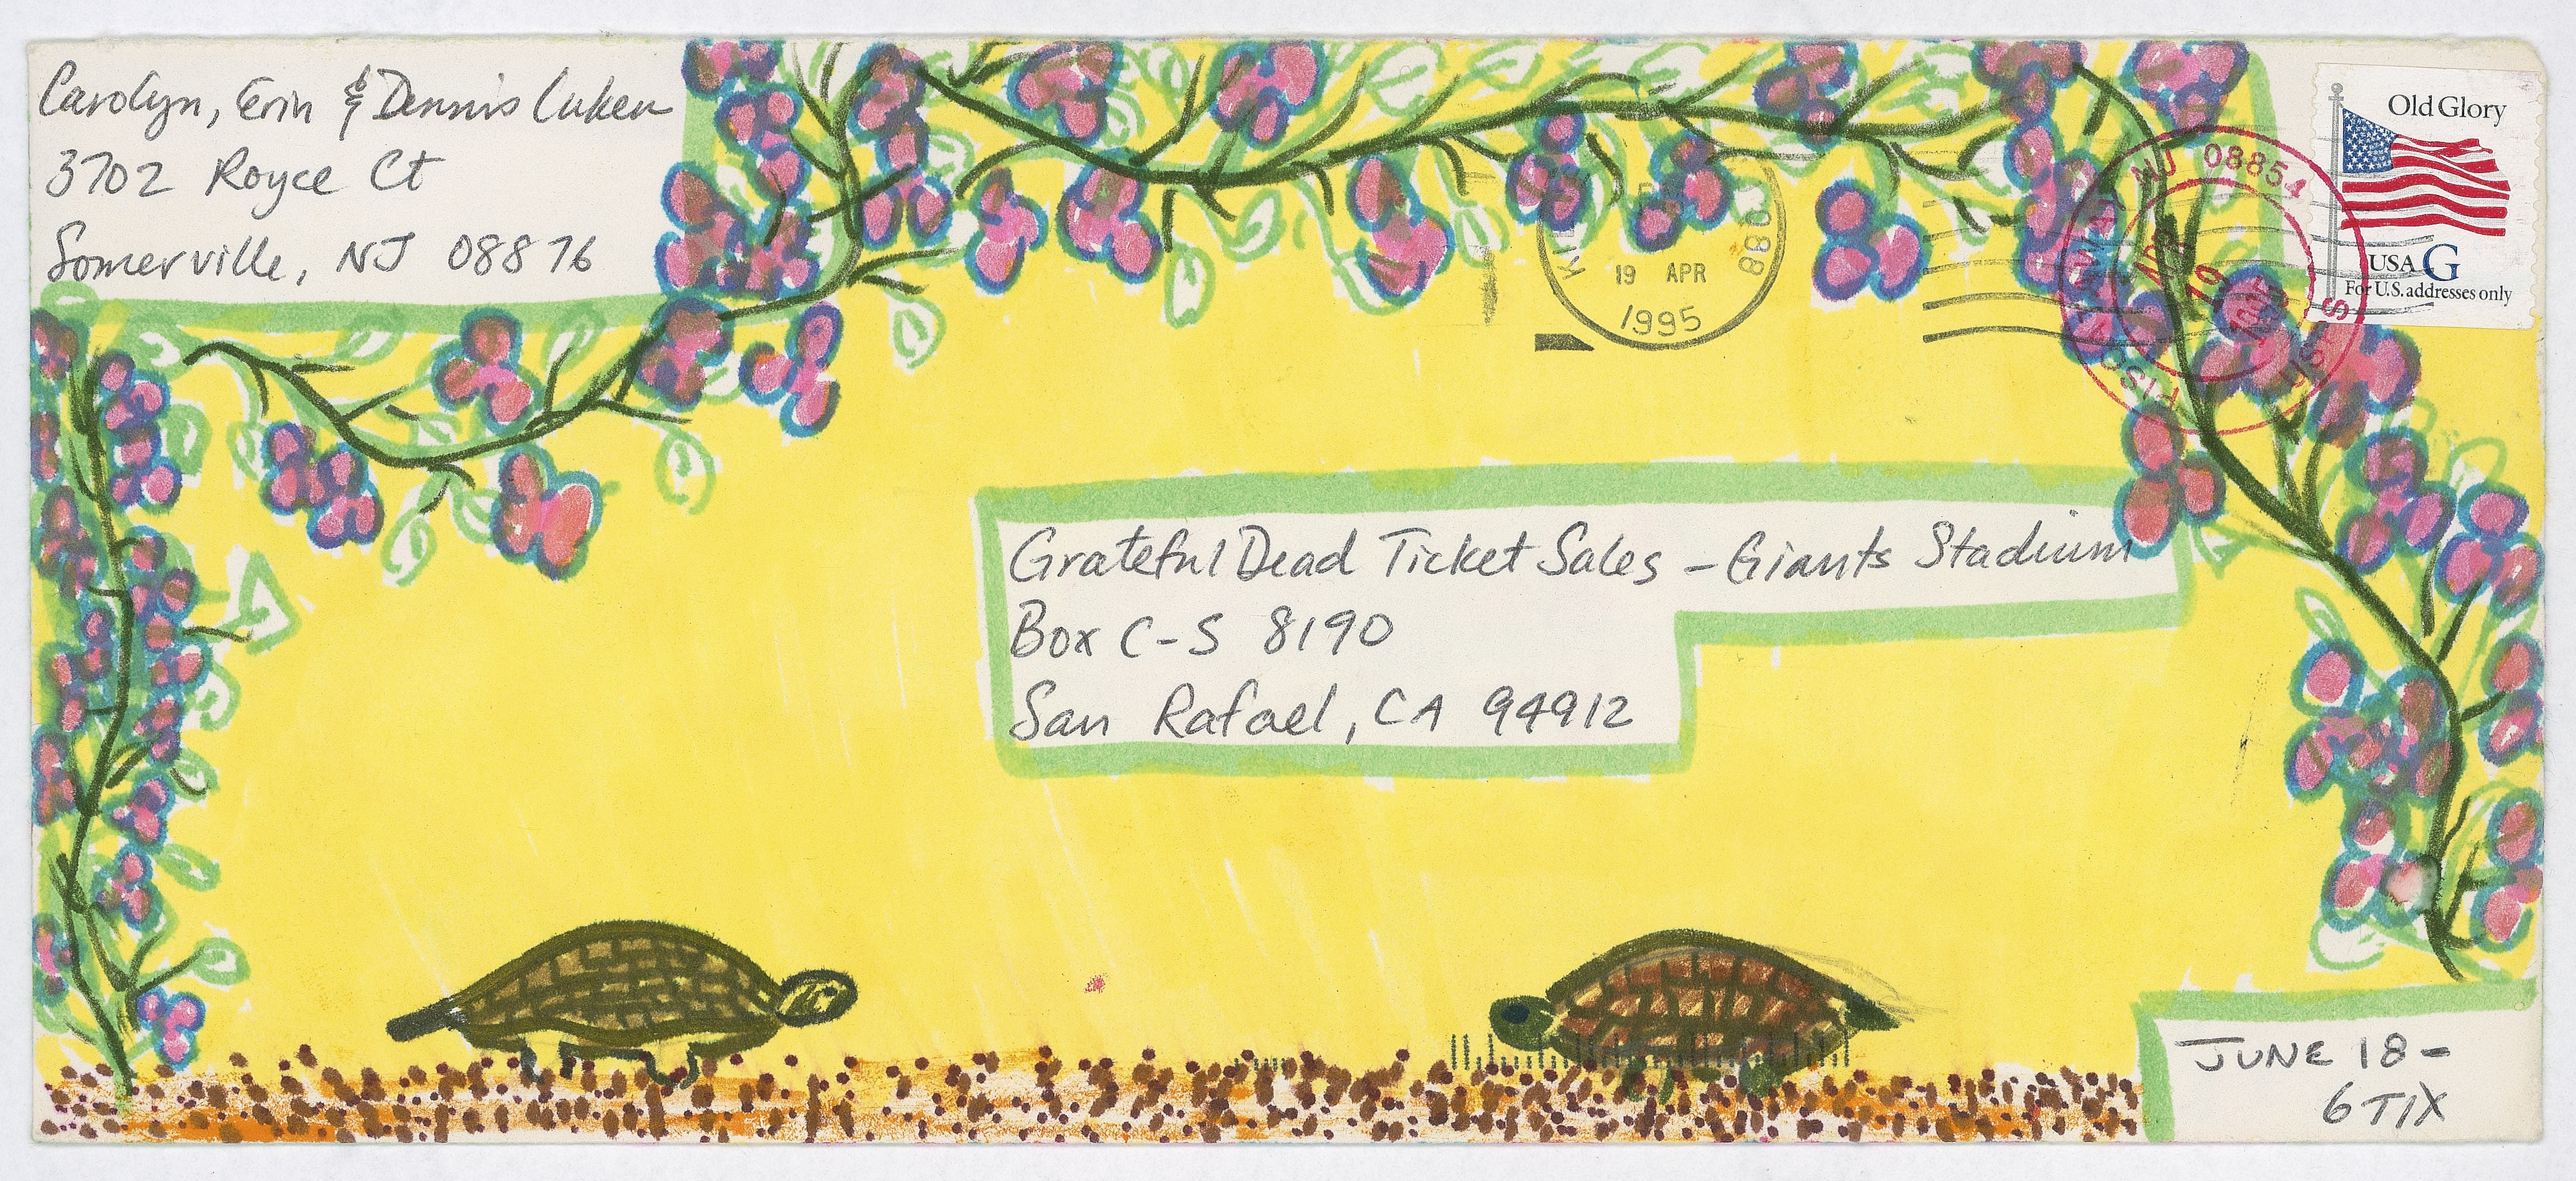 Carolyn, Erin & Dennis Luken
3702 Royce Ct
Somerville, NJ 08876
Old Glory
USA G
For U.S. addresses only
NJ 08854
APR
19
1995
USPS
19 APR
1995
088
Grateful Dead Ticket Sales - Giants Stadium
Box C-S 8190
San Rafael, CA 94912
JUNE 18-
6 TIX